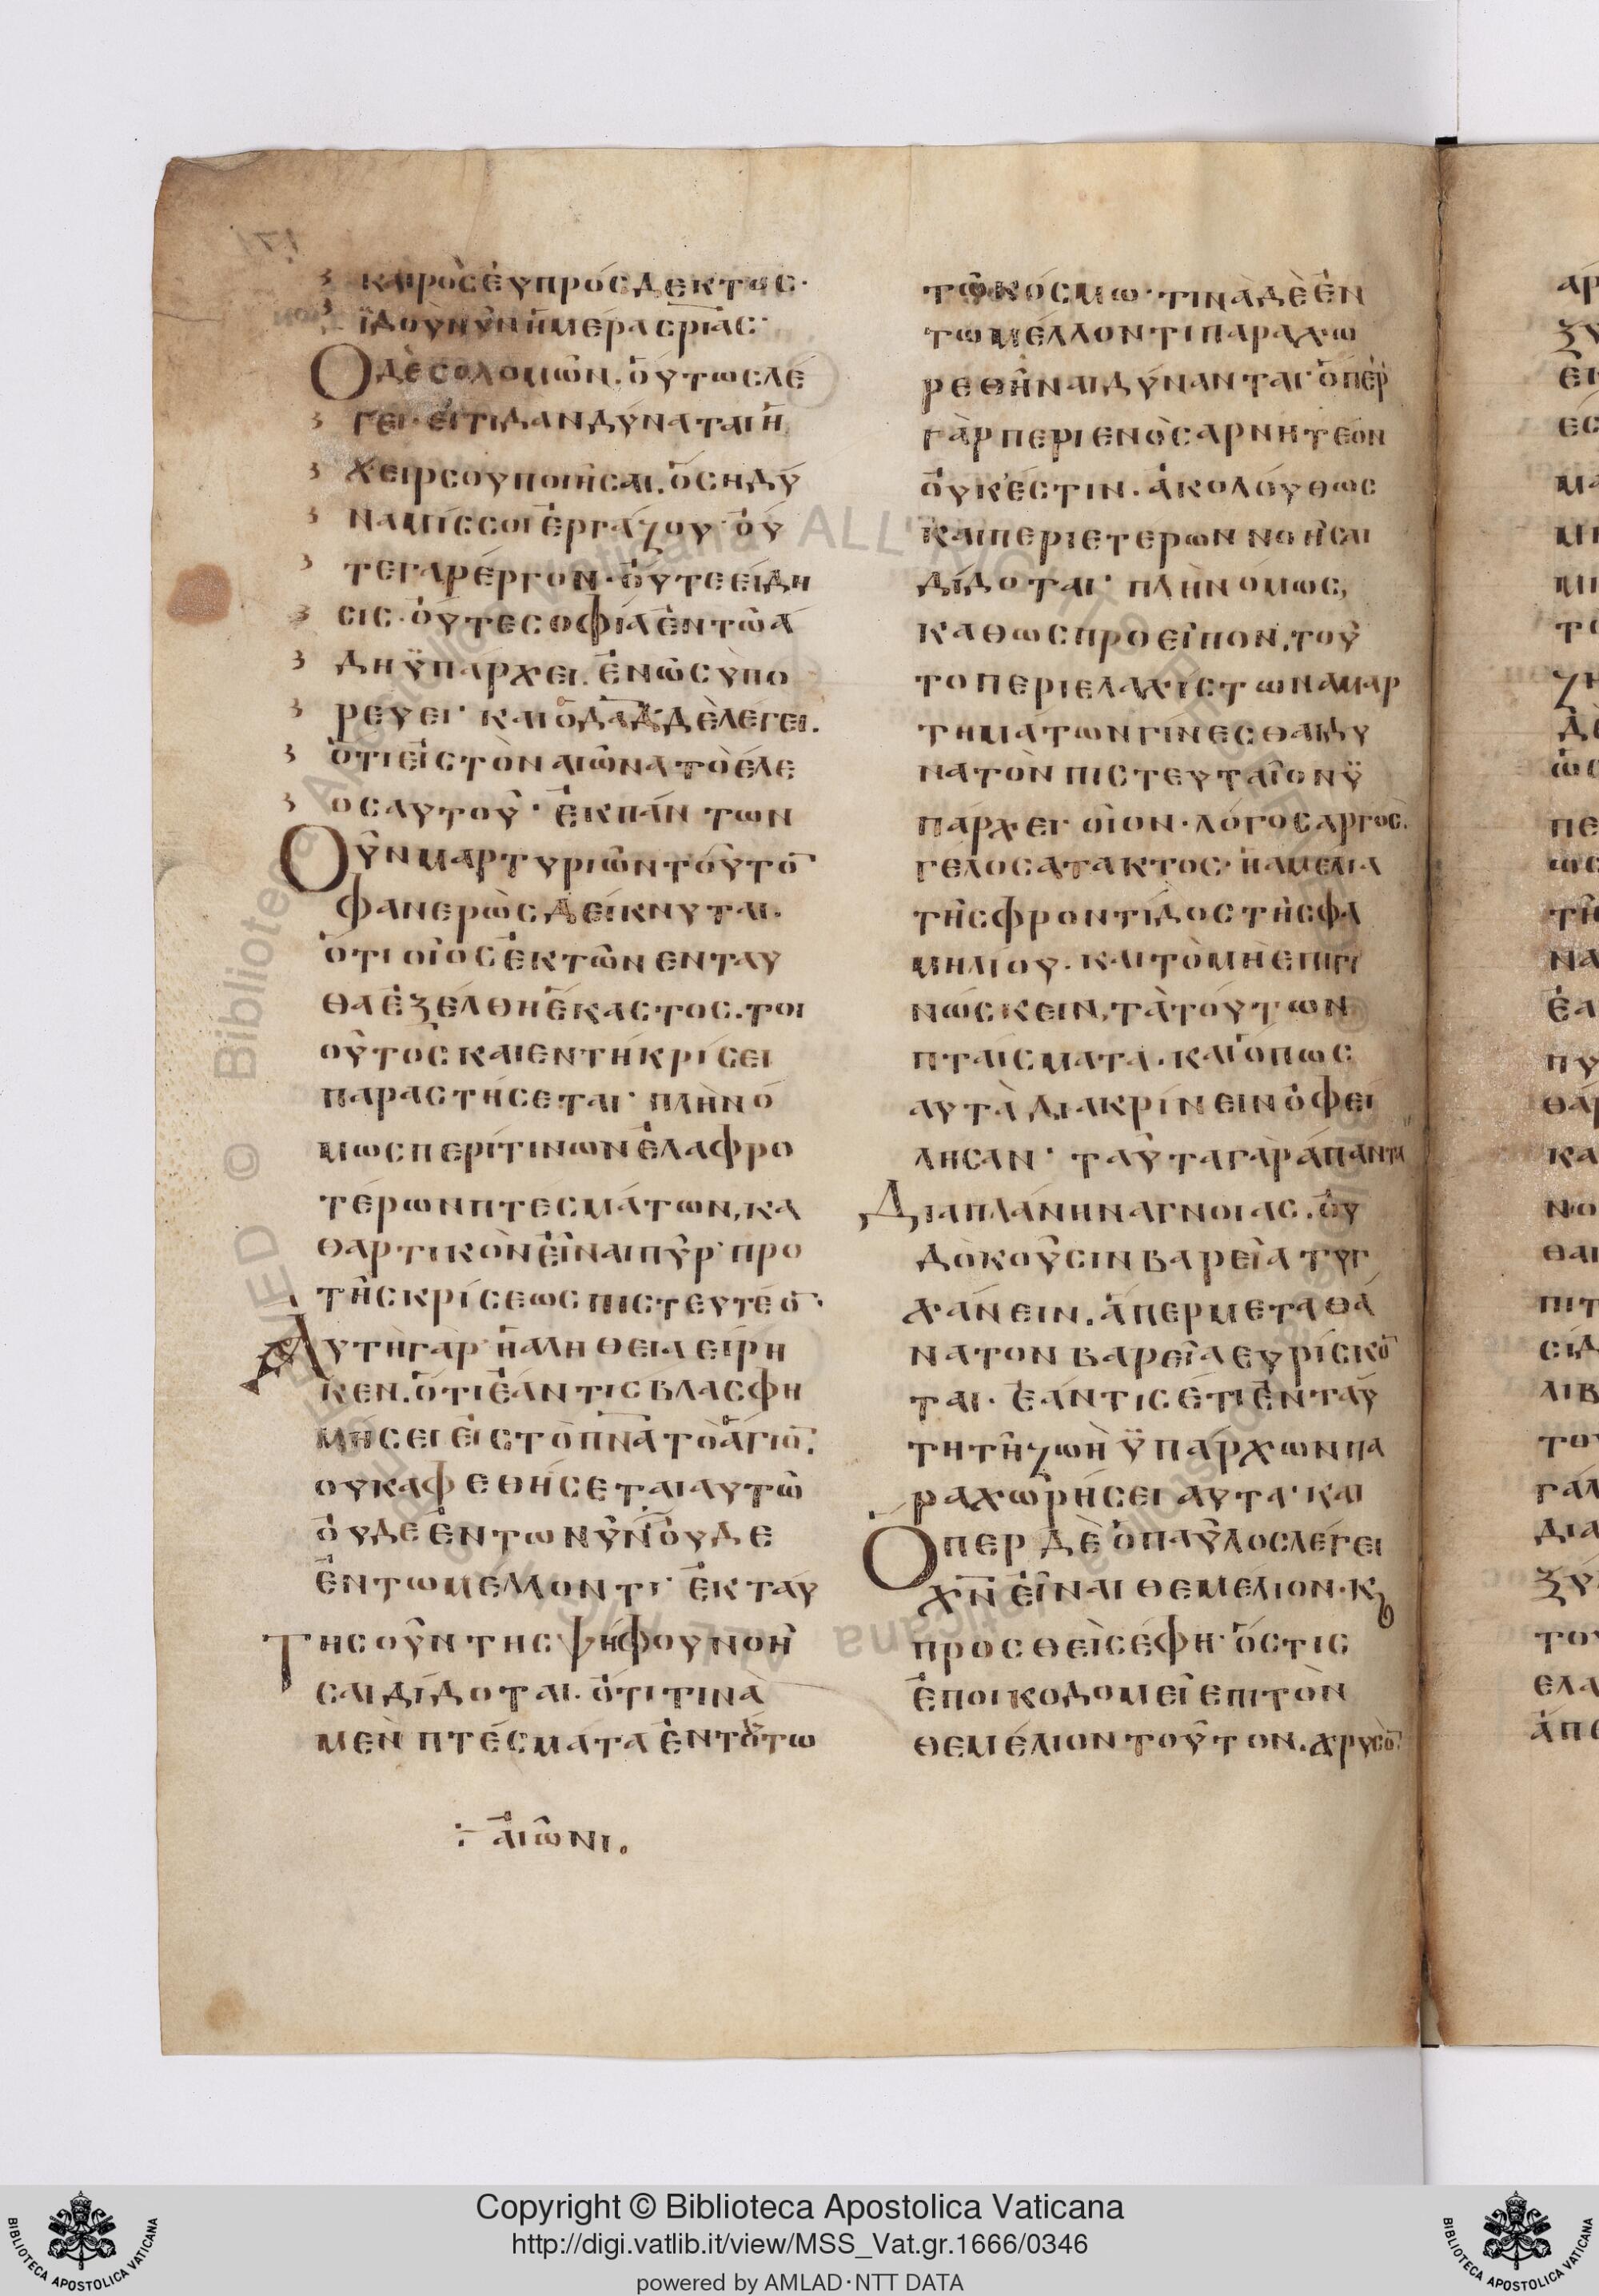 καιρὸς ἐυπρόσδεκτος·
ἰδοὺ νῦν ἡμέρα σρίας·
Ὁ δὲ σολομῶν. ὅυτως λέ
γει· εἴ τι δ' ἂν δύναται ἡ
χείρ σου ποιῆσαι. ὅση δύ
ναμίς σοι ἐργάζου· ὅυ
τε γὰρ ἔργον· ὅυτε εἴδη
σις· ὅυτε σοφία ἐν τῶ ἅ
δη ϋπάρχει. ἐν ὧ σὺ πο
ρεύει· καὶ ὁ δαδ δὲ λέγει.
ὅτι εἰς τὸν αἰῶνα τὸ ἔλε
ος αυτοῦ· ἐκ πάντων
Οὖν μαρτυριῶν τοῦτο
φανερῶς δείκνυται.
ὅτι οἷος ἐκ τῶν ενταυ
θα ἐξέλθη ἕκαστος. τοι
οῦτος και εν τῆ κρίσει
παραστήσεται· πλὴν ὅ
μως περί τινων ἐλαφρο
τέρων πτεσμάτων, κα
θαρτικὸν εἶναι πῦρ· προ
τῆς κρίσεως πιστευτέο·
Αυτὴ γὰρ ἡ αληθεια είρη
κεν. ὅτι ἐάν τις βλασφη
μήσει εἰς τὸ πνα τὸ ἅγιο.
ουκ αφεθήσεται αυτῶ
ὅυδε ἐν τω νῦν ὅυδε
ἐν τω μέλλοντι· ἐκ ταύ
της οῦν της ψήφου νοῆ
σαι δίδοται. ὅτι τινὰ
μὲν πτέσματα ἐν τούτω
τῶ κόσμω· τινὰ δὲ ἐν
τω μέλλοντι παραχω
ρεθῆναι δύνανται· ὅπερ
γὰρ περι ενὸς αρνητεον
ὀυκ ἔστιν· ἀκολούθως
και περι ετερων νοῆσαι
δίδοται· πλὴν ομως,
καθως προειπον, τοῦ
το περι ελαχίστων αμαρ
τημάτων γίνεσθαι δυ
νατὸν πιστευταῖον ϋ
πάρχει· οἷον· λόγος αργὸς.
γελος ατακτος· ἡ αμελια
τῆς φροντίδος τῆς φα
μηλιου· και τὸ μὴ ἐπιγι
νώσκειν, τὰ τούτων
πταίσματα. και ὅπως
αυτὰ διακρίνειν ὀφεί
λησαν· ταῦτα γὰρ ἅπαντα
Δια πλάνην αγνοιας. ὀυ
δοκοῦσιν βαρεῖα τυγ
χάνειν. ἅπερ μετα θά
νατον βαρεῖα ευρίσκο
ται· ἐάν τις ἔτι ἐν ταύ
τη τῆ ζωῆ ϋπάρχων πα
ραχωρήσει αυτα· και
Ὅπερ δὲ ὁ παῦλος λέγει
χν εἶναι θεμέλιον· κ
προσθεὶς έφη· ὅστις
ἐποικοδομεῖ επι τὸν
θεμέλιον τοῦτον. χρυσὸ
αἰῶνι.
Copyright © Biblioteca Apostolica Vaticana
http://digi.vatlib.it/view/MSS_Vat.gr.1666/0346
powered by AMLAD·NTT DATA